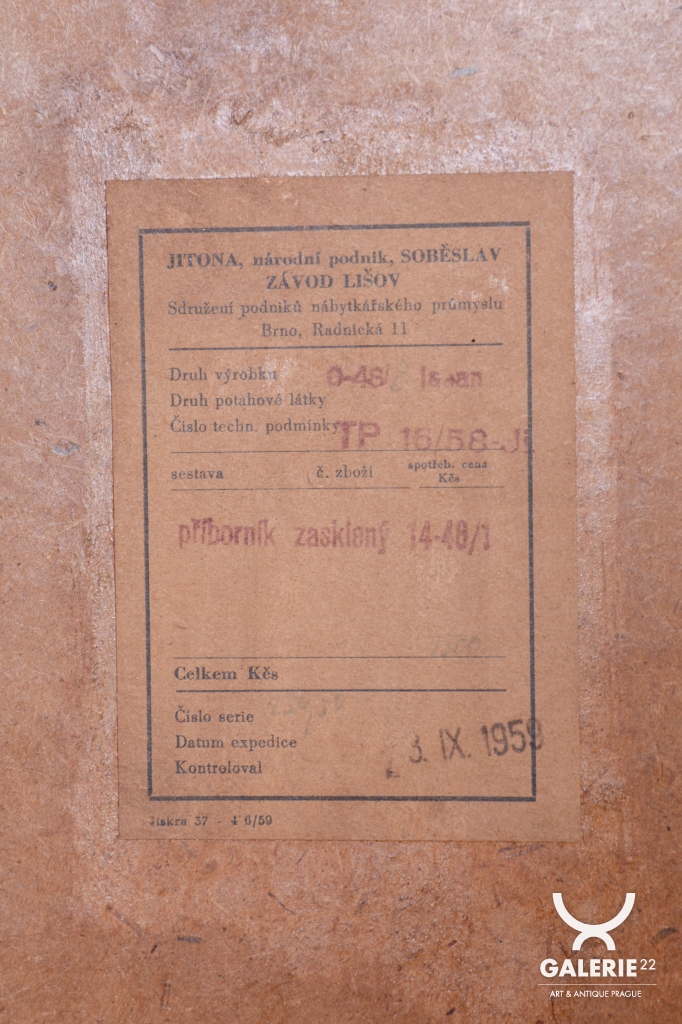 JITONA, národní podnik, SOBĚSLAV
ZÁVOD LIŠOV
Sdružení podniků nábytkářského průmyslu
Brno, Radnická 11
Druh výrobku 0-48/
Druh potahové látky
Číslo techn. podmínky TP 16/58-Ji
sestava č. zboží spotřeb. cena
Kčs
příborník zasklený 14-48/1
Celkem Kčs
Číslo serie
Datum expedice 3. IX. 1959
Kontroloval
Jiskra 37 - 4 6/59
GALERIE 22
ART & ANTIQUE PRAGUE